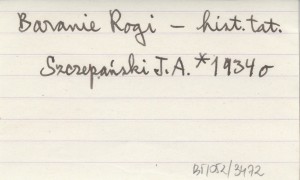 Baranie Rogi – hist. tat.
Szczepański J. A. *1934 o
BJ/052/3472